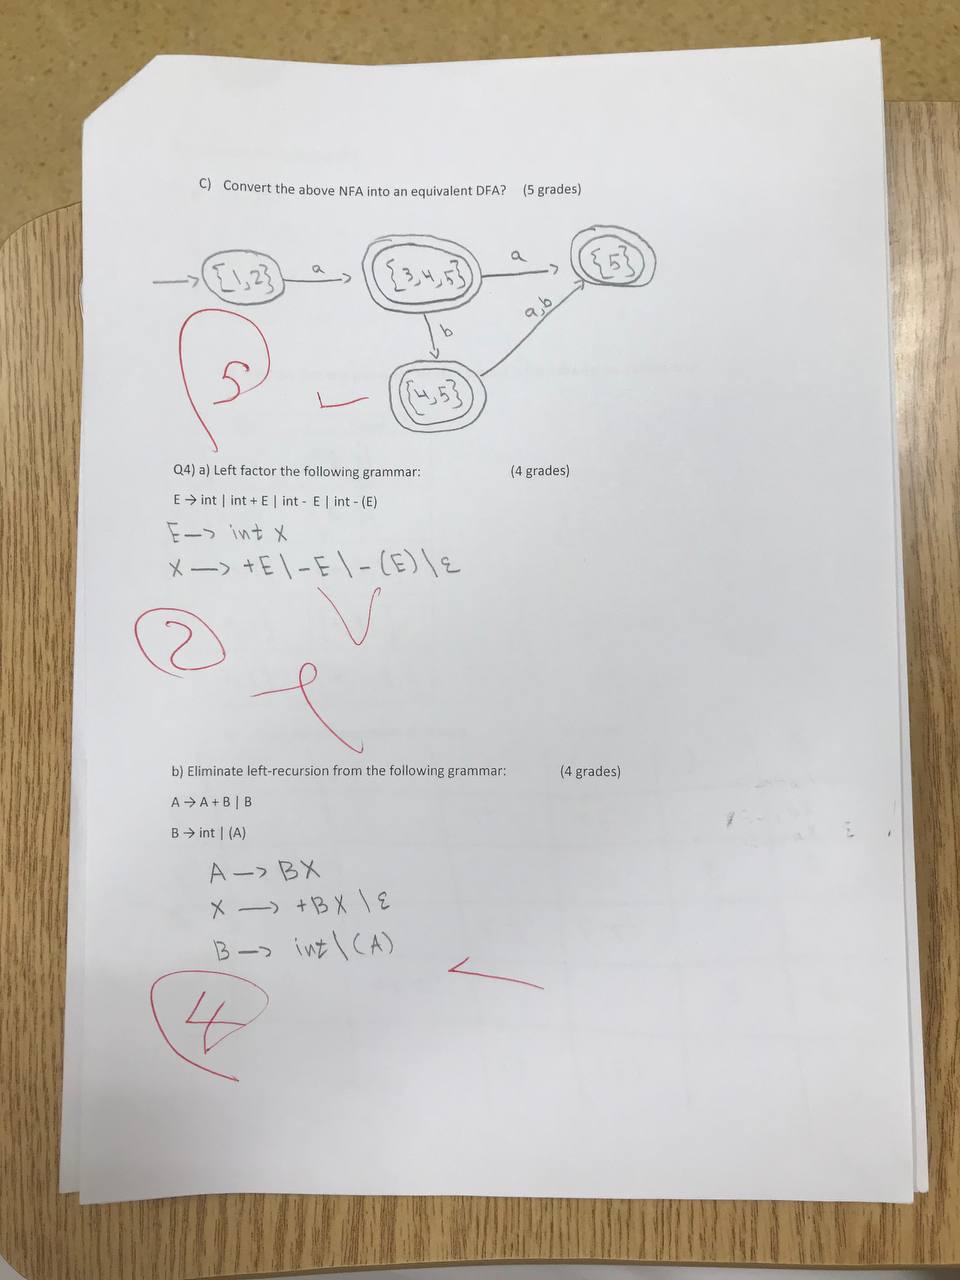 C) Convert the above NFA into an equivalent DFA? (5 grades)
{1,2} a {3,4,5} a {5}
b a,b
{4,5}
5
Q4) a) Left factor the following grammar: (4 grades)
E → int | int + E | int - E | int - (E)
E → int X
X → +E \ -E \ -(E) \ ε
2
b) Eliminate left-recursion from the following grammar: (4 grades)
A → A + B | B
B → int | (A)
A → BX
X → +BX \ ε
B → int \ (A)
4